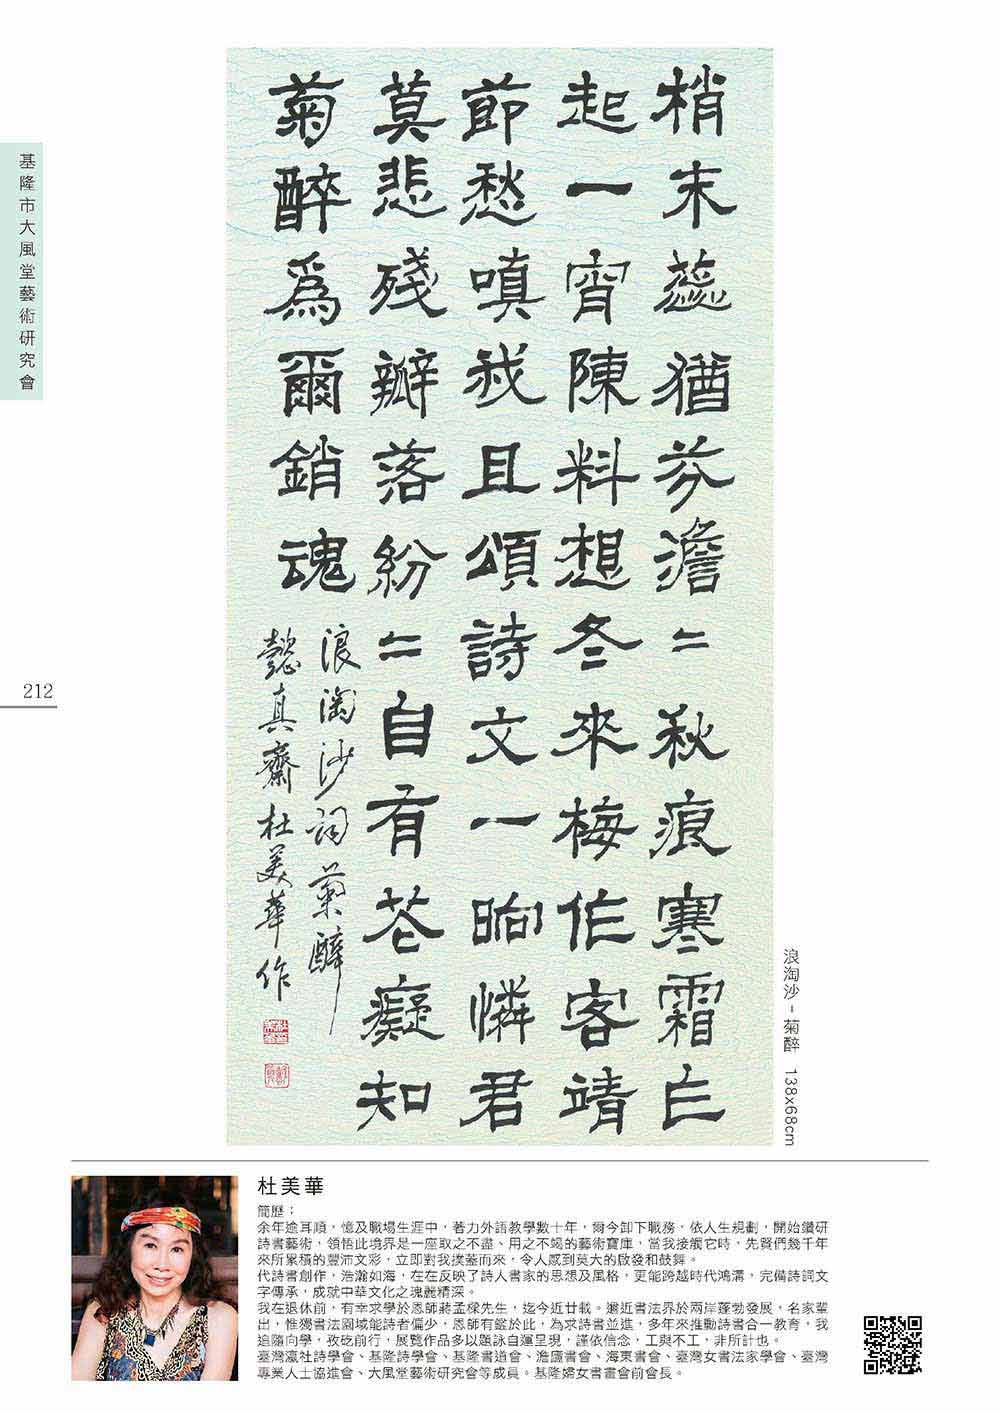 基隆市大風堂藝術研究會
212
梢末蕊猶芬澹〻秋痕寒霜乍
起一宵陳料想冬來梅作客靖
節愁嗔我且頌詩文一晌憐君
莫悲殘瓣落紛〻自有花癡知
菊醉爲爾銷魂
浪淘沙詞菊醉
懿真齋杜美華作
浪淘沙-菊醉 138x68cm
杜美華
簡歷：
余年逾耳順，憶及職場生涯中，著力外語教學數十年，爾今卸下職務，依人生規劃，開始鑽研
詩書藝術，領悟此境界是一座取之不盡、用之不竭的藝術寶庫，當我接觸它時，先賢們幾千年
來所累積的豐沛文彩，立即對我撲蓋而來，令人感到莫大的啟發和鼓舞。
代詩書創作，浩瀚如海，在在反映了詩人書家的思想及風格，更能跨越時代鴻溝，完備詩詞文
字傳承，成就中華文化之瑰麗精深。
我在退休前，有幸求學於恩師蔣孟樑先生，迄今近廿載。邇近書法界於兩岸蓬勃發展，名家輩
出，惟獨書法園域能詩者偏少，恩師有鑑於此，為求詩書並進，多年來推動詩書合一教育，我
追隨向學，孜矻前行，展覽作品多以題詠自運呈現，謹依信念，工與不工，非所計也。
臺灣瀛社詩學會、基隆詩學會、基隆書道會、澹廬書會、海東書會、臺灣女書法家學會、臺灣
專業人士協進會、大風堂藝術研究會等成員。基隆婦女書畫會前會長。